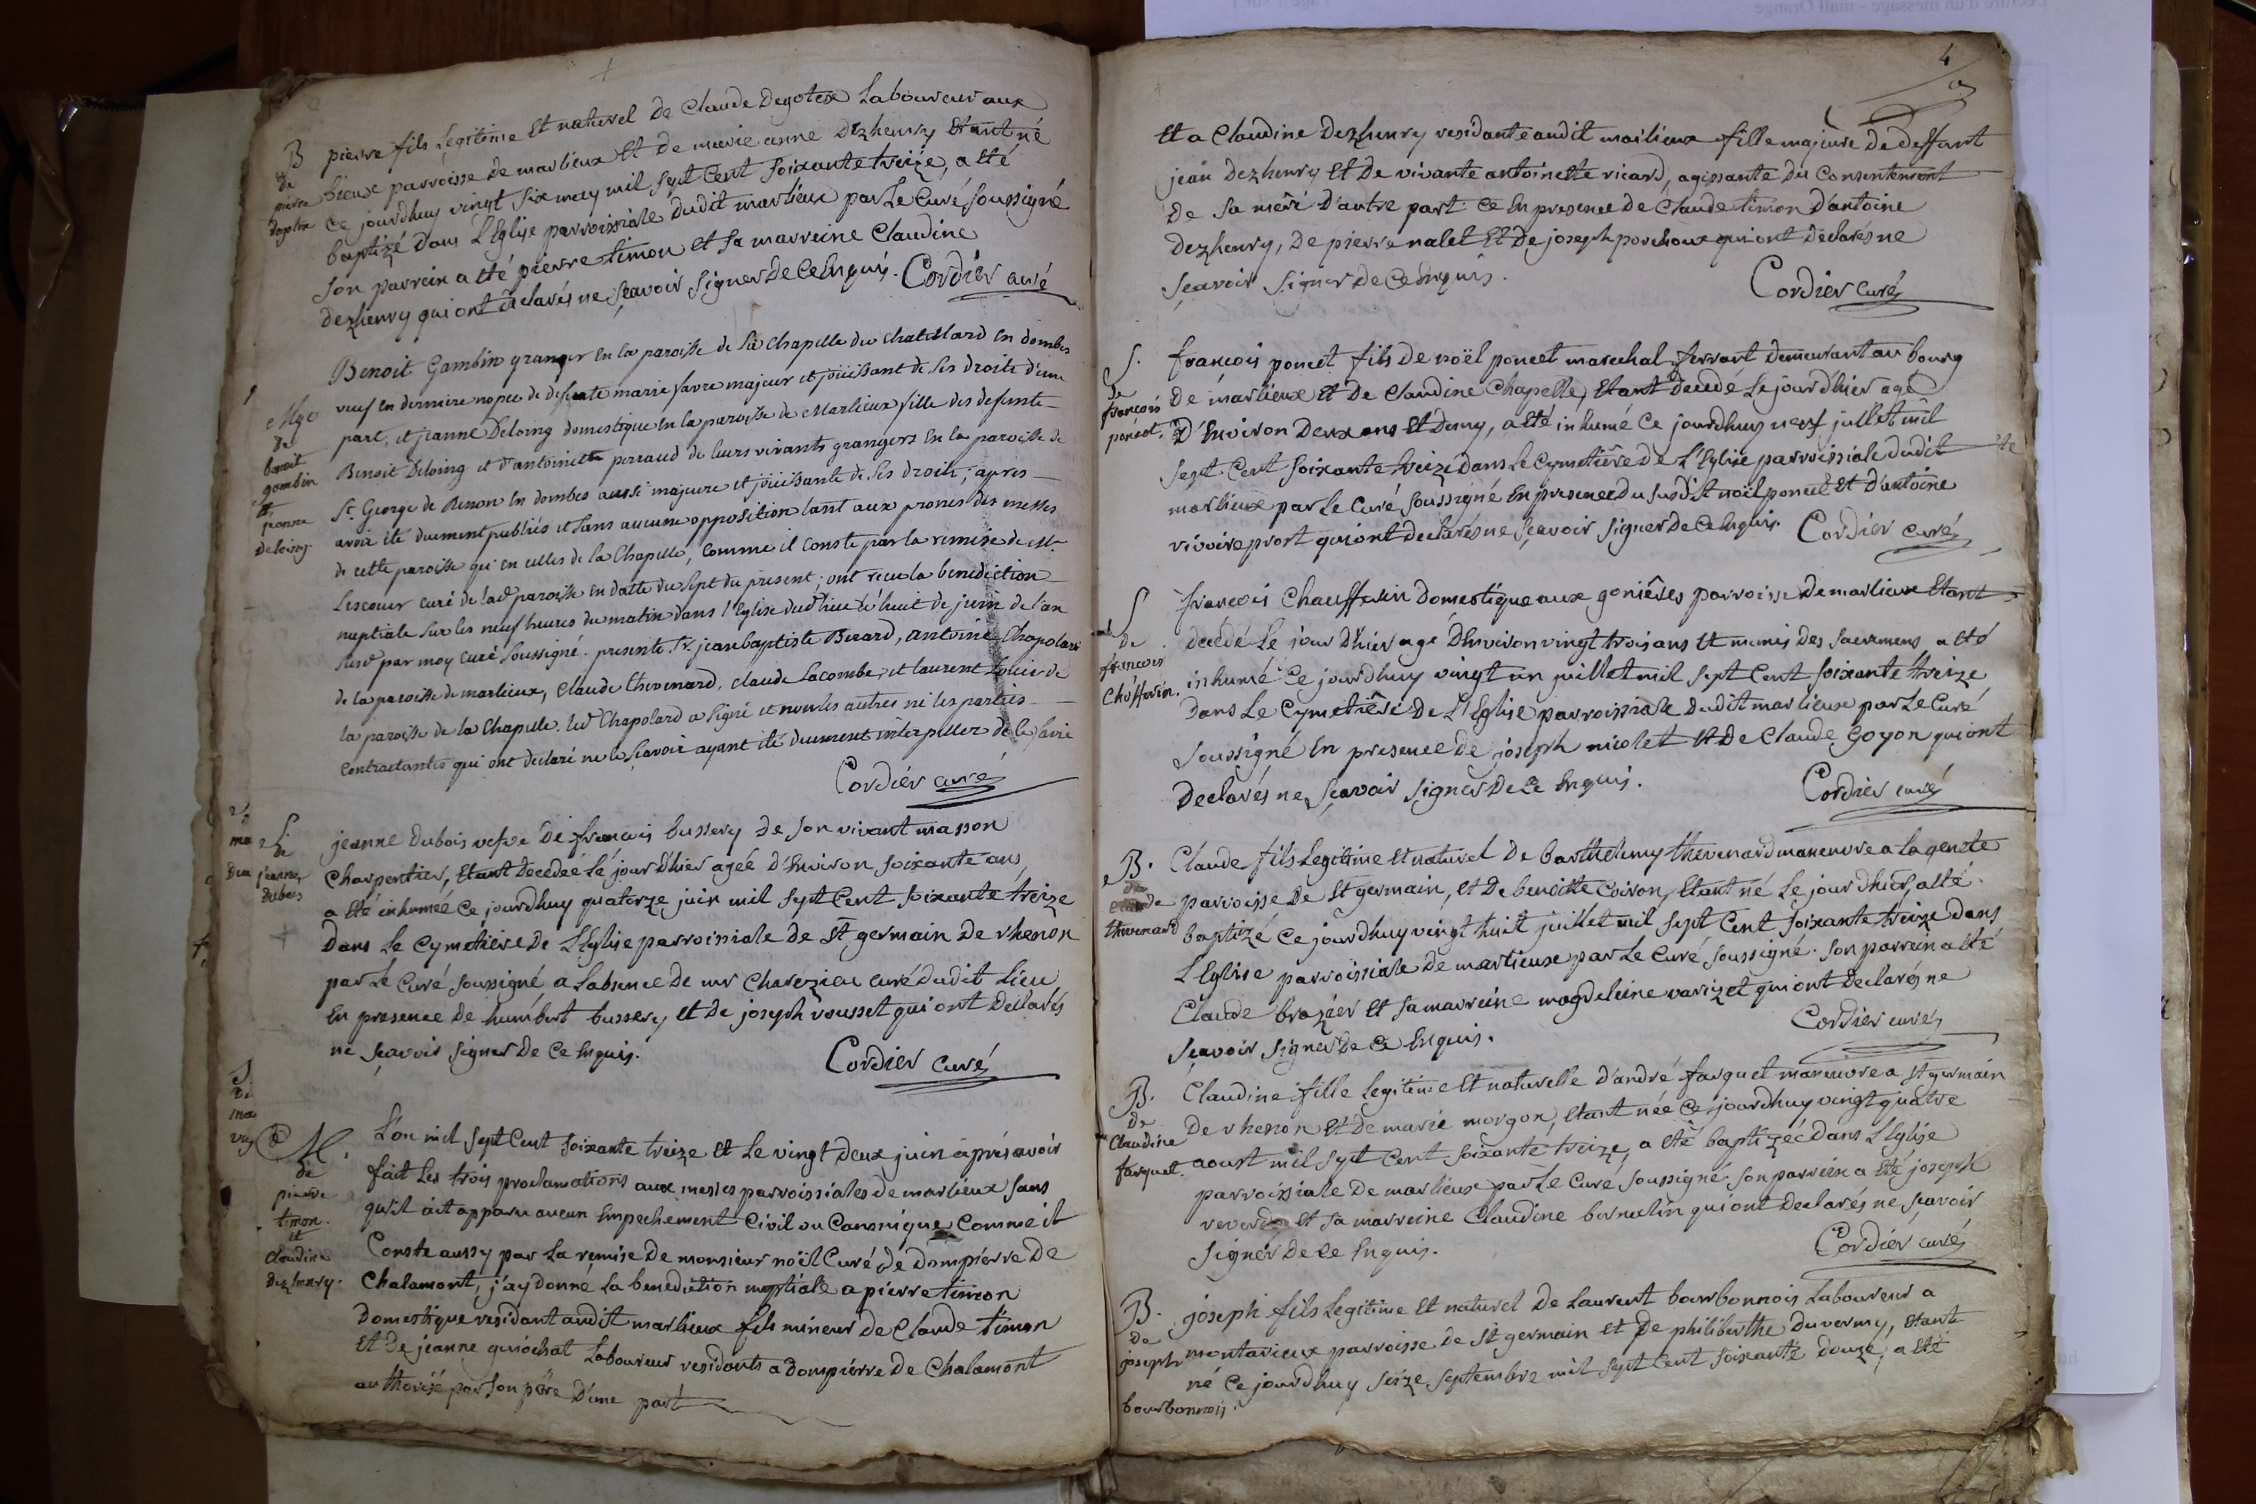 B
de
pierre
pierre fils Legitime Et naturel de Claude Degotex Laboureur aux
bieux parroisse de marlieux Et de marie anne Dezhenry Etant né
Ce jourdhuy vingt six may mil sept Cent soixante treize, a Eté
baptizé dans L'Eglise parroissiale dudit marlieux par Le Curé soussigné
son parrein a Eté pierre timon Et sa marreine Claudine
dezhenry qui ont declarés ne sçavoir signer de Ce Enquis. Cordier curé
Mge
de
benoit
gambin
et
jeanne
Deloing
Benoit Gambin granger en la paroisse de la Chapelle du Chatelard en dombes
veuf en derniere nopce de defunte marie favre majeur et joüissant de ses droits d'une
part, et jeanne Deloing domestique en la paroisse de Marlieux fille des defunts
Benoit Deloing et d'antoinette perraud de leurs vivants grangers en la paroisse de
St. George de Renon en dombes aussi majeure et joüissante de ses droits; apres
avoir été duement publiés et sans aucune opposition tant aux prones des messes
de cette paroisse qu'en celles de la Chapelle, comme il conste par la remise de Mr.
Lescuer curé de lad. paroisse en datte du sept du present; ont reçu la benediction
nuptiale sur les neuf heures du matin dans l'Eglise dud. lieu le huit de juin de l'an
susd. par moy curé soussigné. presents Sr. jean baptiste Berard, antoine Chapolard
de la paroisse de marlieux, Claude thevenard, claude Lacombe, et laurent de
la paroisse de la Chapelle. led. Chapolard a signé et non les autres ni les parties
contractantes qui ont declaré ne le sçavoir ayant été duement interpellez de le faire
Cordier curé
S
de
jeanne
dubois
jeanne dubois vefve de françois bussery de son vivant masson
charpentier, Etant decedée Le jour D'hier agée D'Environ soixante ans,
a Eté inhumée Ce jourdhuy quatorze juin mil sept Cent soixante treize
Dans Le Cymetiere de L'Eglise parroissiale de St germain de rhenon
par Le Curé soussigné a Labsence de mr Charezieu curé dudit Lieu
En presence de humbert bussery Et de joseph rousset qui ont Declarés
ne sçavoir signer de Ce Enquis. Cordier Curé
M.
de
pierre
timon
et
Claudine
Dezhenry.
L'an mil sept Cent soixante treize Et Le vingt deux juin aprés avoir
fait Les trois proclamations aux messes parroissiales de marlieux sans
qu'il ait apparu aucun Empechement Civil ou Canonique, Comme il
Conste aussy par La remise de monsieur noël Curé de dompierre de
Chalamont, j'ay donné La benediction nuptiale a pierre timon
Domestique residant audit marlieux fils mineur de Claude timon
Et de jeanne quiochat Laboureur residants a Dompierre de Chalamont
authorisé par son pére D'une part
4
Et a Claudine Dezhenry residante audit marlieux fille majeure de deffunt
jean Dezhenry Et de vivante antoinette ricard, agissante du Consentement
de Sa meré D'autre part. Ce En presence de Claude timon D'antoine
Dezhenry, De pierre nalet Et de joseph porchoux qui ont declarés ne
sçavoir signer de Ce Enquis.
Cordier Curé
S.
de
françois
poncet.
françois poncet fils de noël poncet marechal ferrant demeurant au bourg
de marlieux Et de Claudine Chapelle, Etant decedé Le jour d'hier agé
D'Environ Deux ans Et Demy, a Eté inhumé Ce jourdhuy neuf juillet mil
sept Cent soixante treize dans Le Cymetiére de L'Eglise parroissiale dudit
marlieux par Le Curé soussigné En presence du susdit noël poncet Et d'antoine
vivoireprost qui ont declarés ne sçavoir signer de Ce Enquis. Cordier curé
S
de
françois
Chofferin.
françois Chaufferin Domestique aux goniéres parroisse de marlieux Etant
decedé Le jour D'hier agé D'Environ vingt trois ans Et munis Des sacremens a Eté
inhumé Ce jourdhuy vingt un juillet mil sept Cent soixante treize
Dans Le Cymetiére De L'Eglise parroissiale dudit marlieux par Le Curé
soussigné En presence de joseph nicolet Et De Claude Goyon qui ont
Declarés ne sçavoir signer De Ce Enquis.
Cordier curé
B.
de
thevenard
Claude fils Legitime Et naturel de barthelemy thevenard maneuvre a La genete
parroisse de St germain, Et de benoitte Coiron, Etant né Le jour dhier, a Eté
baptizé Ce jourdhuy vingt huit juillet mil sept Cent soixante treize dans
L'Eglise parroissiale de marlieux par Le Curé soussigné. son parrein a Eté
Claude brazier Et sa marreine magdeleine varizet qui ont Declarés ne
sçavoir signer De Ce Enquis.
Cordier curé
B.
de
Claudine
farguet.
Claudine fille Legitime Et naturelle d'andré farguet maneuvre a St germain
De rhenon Et de marie morgon, Etant née Ce jourdhuy vingt quatre
aoust mil sept Cent soixante treize, a Eté baptizée dans L'Eglise
parroissiale De marlieux par Le Curé soussigné. son parrein a Eté joseph
Et sa marreine Claudine bernulin qui ont Declarés ne sçavoir
signer De Ce Enquis.
Cordier curé
B.
de
joseph
bourbonnois.
joseph fils Legitime Et naturel De Laurent bourbonnois Laboureur a
montarieux parroisse de St germain Et De philiberthe duverny, Etant
né Ce jourdhuy seize septembre mil sept Cent soixante douze, a Eté